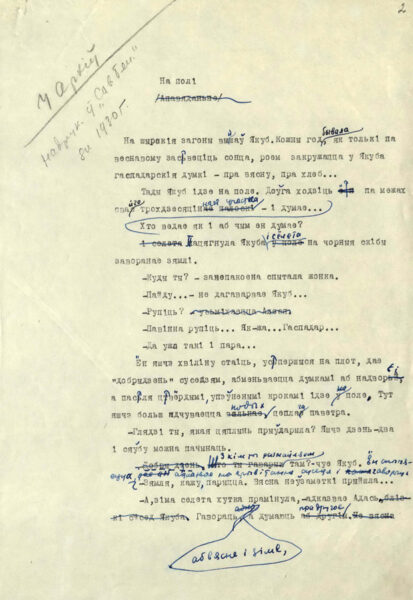 2
Чарнiў
надрук. ў „Савбел."
за 1930 г.
На полі
/Апавяданьне/
На шырокія загоны выйшаў Якуб. Кожны год, бывала як толькі па
веснавому засьвеціць сонца, роем закружацца у Якуба
гаспадарскія думкі - пра вясну, пра хлеб...
Тады Якуб ідзе на поле. Доўга ходзіць па межах
сваёй трохдзесяціннай палоскі - і думае...
Хто ведае як і аб чым ён думае?
І сёлета пацягнула Якуба і сёлета у поле на чорныя скібы
заворанае зямлі.
-Куды ты? - занепакоена спытала жонка.
-Пайду... - не дагаварвае Якуб...
-Рупіць?
-Павінна рупіць... Як-жа... Гаспадар...
-Да ужо такі і пара...
Ён яшчэ хвіліну стаіць, усьпершмся на плот, дае
"добрыдзень" суседзям, абменьваецца думкамі аб надвор'і
а пасьля цьвёрдымі, упэўненымі крокамі ідзе на поле. Тут
яшчэ больш адчуваецца вольнае, цеплае паветра.
-Глядзі ты, якая цеплынь прыўдарыла? Яшчэ дзень-два
і сяўбу можна пачынаць.
-Добры дзень, там?-чуе Якуб.
-Зямля, кажу, парыцца. Вясна неўзаметкі прыйшла...
-А, зіма сёлета хутка прамінула, -адказвае Адась,
Гавораць адно а думаюць аб другім. Не вясна
аб вясне і зіме,